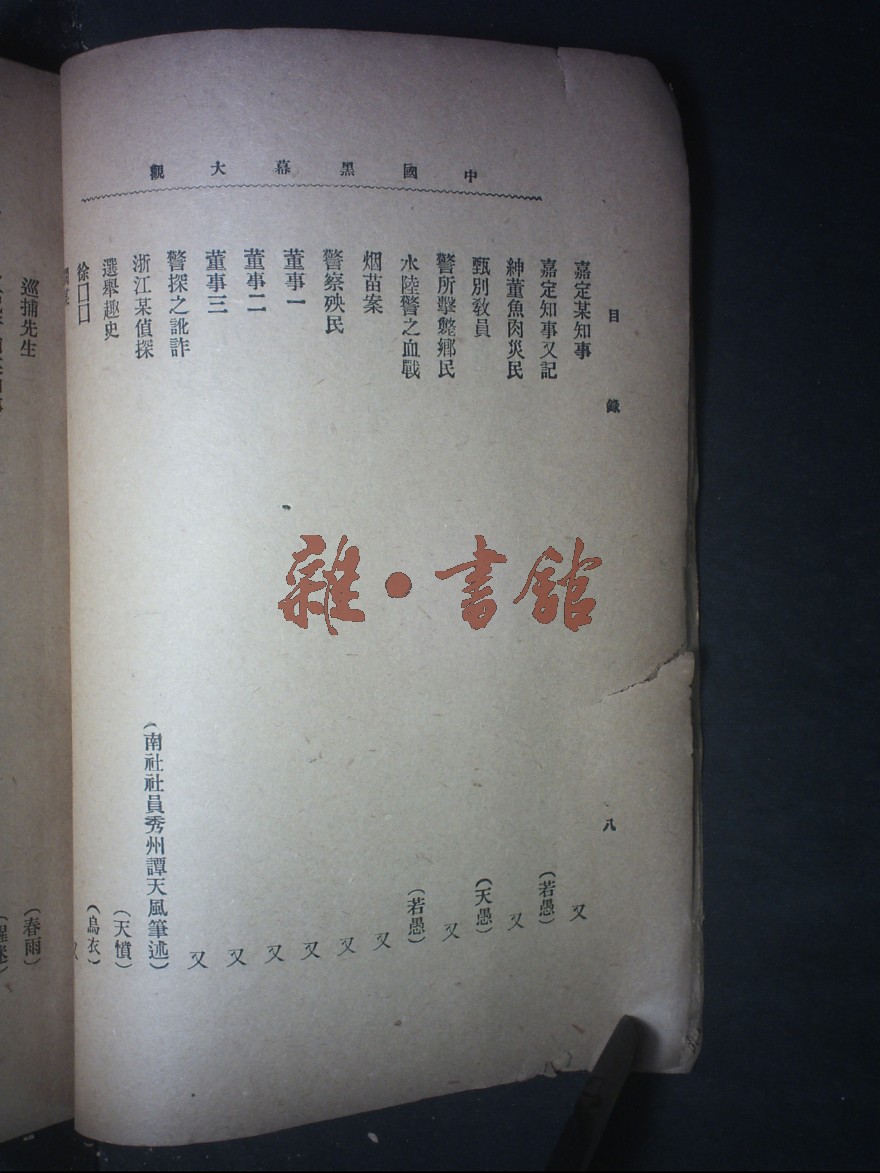 中國黑幕大觀
目錄
八
嘉定某知事 又
嘉定知事又記 (若愚)
紳董魚肉災民 又
甄別敎員 (天愚)
警所擊斃鄉民 又
水陸警之血戰 (若愚)
烟苗案 又
警察殃民 又
董事一 又
董事二 又
董事三 又
警探之訛詐 又
浙江某偵探 (南社社員秀州譚天風筆述)
選舉趣史 (天憤)
徐囗囗 (烏衣)
又
巡捕先生 (春雨)
雜·書館